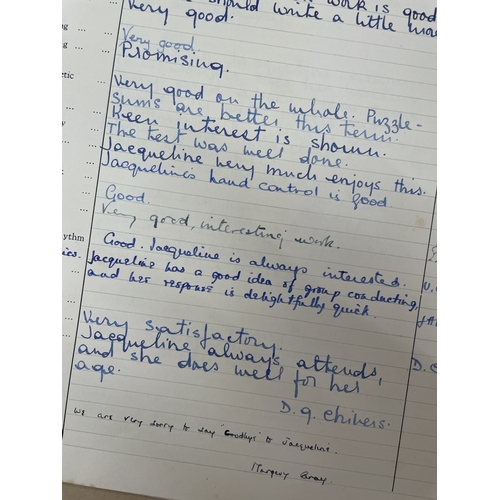 work is good
should write a little more
Very good.
Very good.
Promising.
Very good on the whole. Puzzle-
sums are better this term.
Keen interest is shown.
The test was well done.
Jacqueline very much enjoys this.
Jacqueline's hand control is good.
Good.
Very good, interesting work.
Good. Jacqueline is always interested.
Jacqueline has a good idea of group conducting,
and her response is delightfully quick.
Very satisfactory.
Jacqueline always attends,
and she does well for her
age.
We are very sorry to say "Goodbye" to Jacqueline.
etic
ythm
ics.